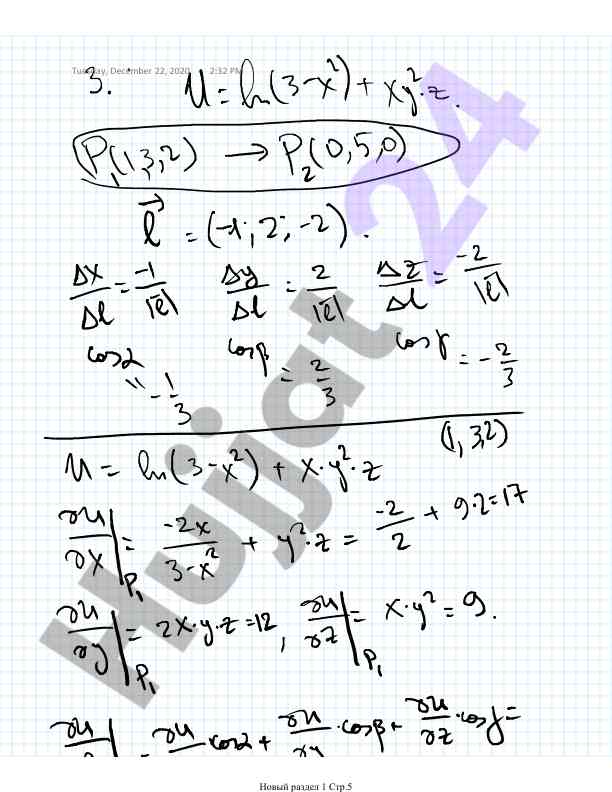 Tuesday, December 22, 2020 2:32 PM
3. U = ln(3-x²) + xy²·z.
P₁(1,3,2) → P₂(0,5,0)
l⃗ = (-1; 2; -2).
Δx/Δl = -1/|l⃗| Δy/Δl = 2/|l⃗| Δz/Δl = -2/|l⃗|
cosα = -1/3 cosβ = 2/3 cosγ = -2/3
(1, 3,2)
u = ln(3-x²) + x·y²·z
∂u/∂x|P₁ = -2x/3-x² + y²·z = -2/2 + 9·2=17
∂u/∂y|P₁ = 2x·y·z=12, ∂u/∂z|P₁ = x·y² = 9.
∂u = ∂u cosα + ∂u/∂y ·cosβ + ∂u/∂z ·cosγ =
Hujjat 24
Новый раздел 1 Стр.5